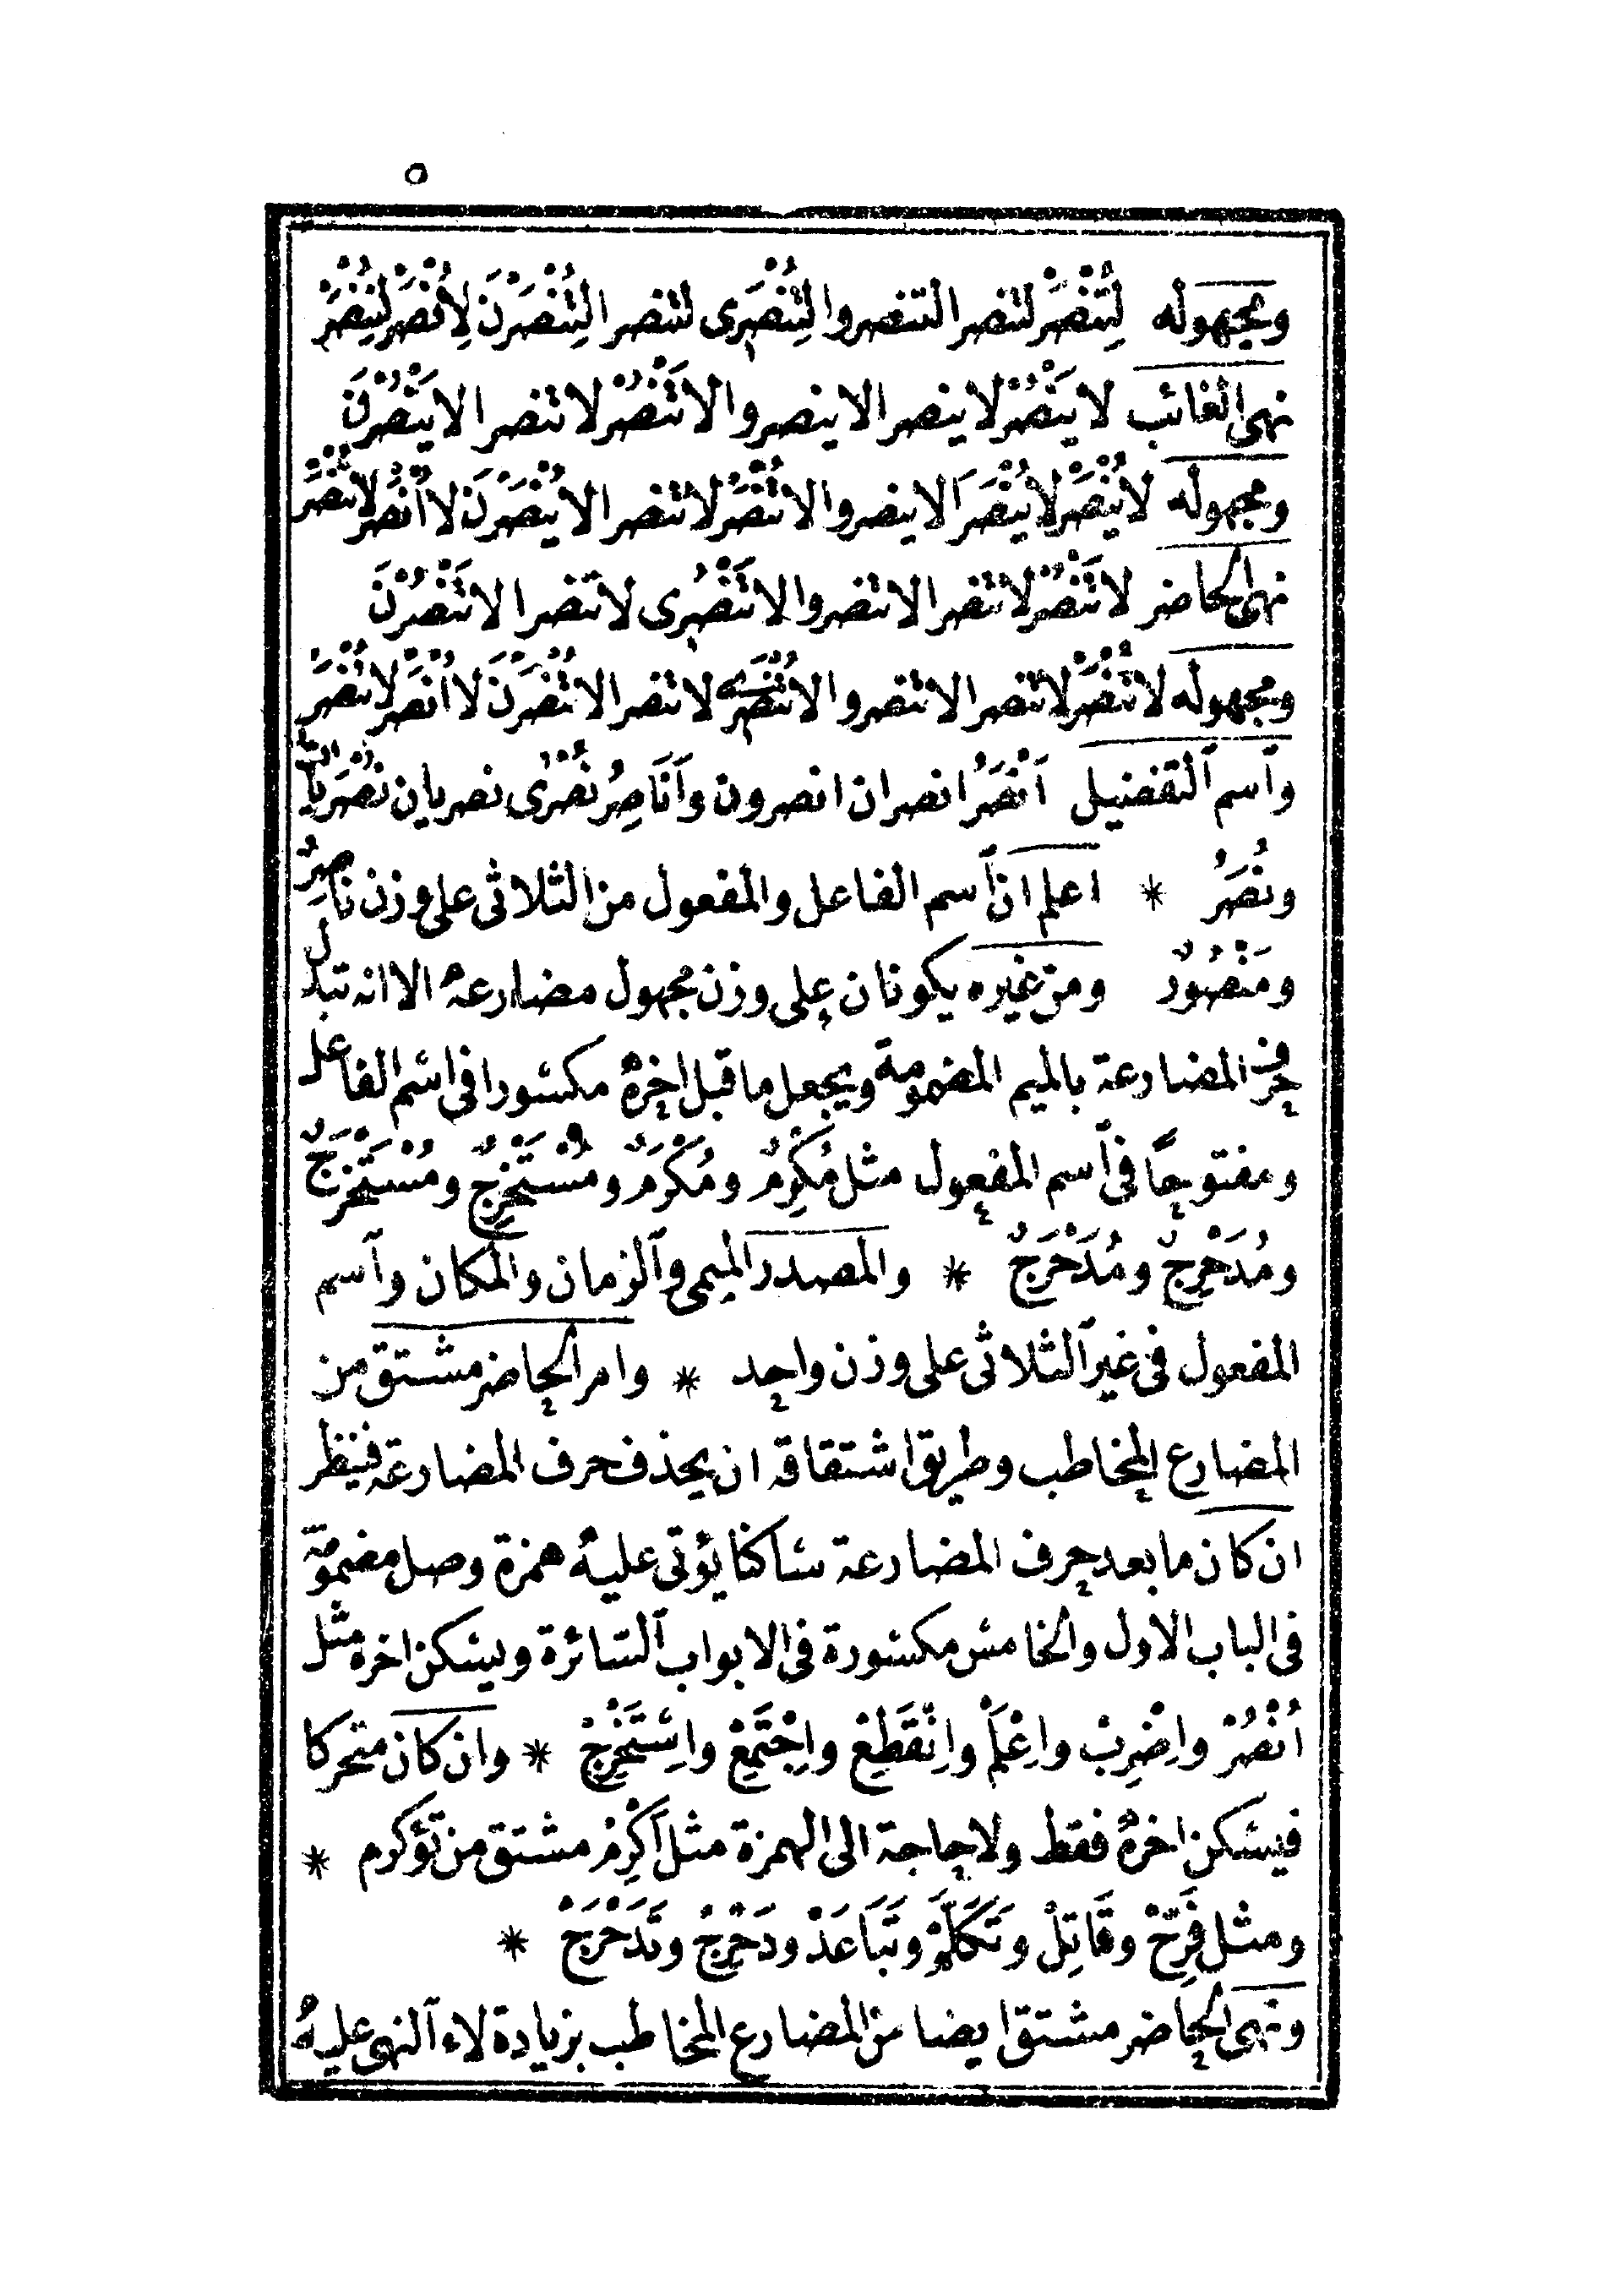 ٥
ومجهوله لِتُنْصَرْ لتنصرا لتنصروا لِتُنْصَرِى لتنصرا لِتُنْصَرْنَ لِاُنْصَرْ لِنُنْصَرْ
نهى الغائب لا يَنْصُرْ لا ينصرا لا ينصروا لا تَنْصُرْ لا تنصرا لا يَنْصُرْنَ
ومجهوله لا يُنْصَرْ لا يُنْصَرَا لا ينصروا لا تُنْصَرْ لا تنصرا لا يُنْصَرْنَ لا اُنْصَرْ لا نُنْصَرْ
نهى الحاضر لا تَنْصُرْ لا تنصرا لا تنصروا لا تَنْصُرِى لا تنصرا لا تَنْصُرْنَ
ومجهوله لا تُنْصَرْ لا تنصرا لا تنصروا لا تُنْصَرِى لا تنصرا لا تُنْصَرْنَ لا اُنْصَرْ لا نُنْصَرْ
وآسم ٱلتفضيل اَنْصَرُ انصران انصرون وَاَنَاصِرُ نُصْرٰى نصريان نُصْرَيَاتٌ
ونُصَرُ * اعلم ان ٱسم الفاعل والمفعول من الثلاثى على وزن نَاصِرٌ
ومَنْصُورٌ ومن غيره يكونان على وزن مجهول مضارعه الا انه تبدل
حرف المضارعة بالميم المضمومة ويجعل ما قبل اخره مكسورا فى اسم الفاعل
ومفتوحًا فى ٱسم المفعول مثل مُكْرِمٌ ومُكْرَمٌ ومُسْتَخْرِجٌ ومُسْتَخْرَجٌ
ومُدَحْرِجٌ ومُدَحْرَجٌ * والمصدر الميمى وٱلزمان والمكان وآسم
المفعول فى غير ٱلثلاثى على وزن واحد * وامر الحاضر مشتق من
المضارع المخاطب وطريق اشتقاقه ان يحذف حرف المضارعة فينظر
ان كان ما بعد حرف المضارعة ساكنا يؤتى عليه همزة وصل مضمومة
فى الباب الاول والخامس مكسورة فى الابواب ٱلسائرة ويسكن اخره مثل
اُنْصُرْ واِضْرِبْ واِعْلَمْ واِنْقَطِعْ واِجْتَمِعْ واِسْتَخْرِجْ * وان كان متحركا
فيسكن اخره فقط ولا حاجة الى الهمزة مثل اَكْرِمْ مشتق من تؤكرم *
ومثل فَرِّحْ وقَاتِلْ وتَكَلَّمْ وتَبَاعَدْ ودَحْرِجْ وتَدَحْرَجْ *
ونهى الحاضر مشتق ايضا من المضارع المخاطب بزيادة لاء ٱلنهى عليه